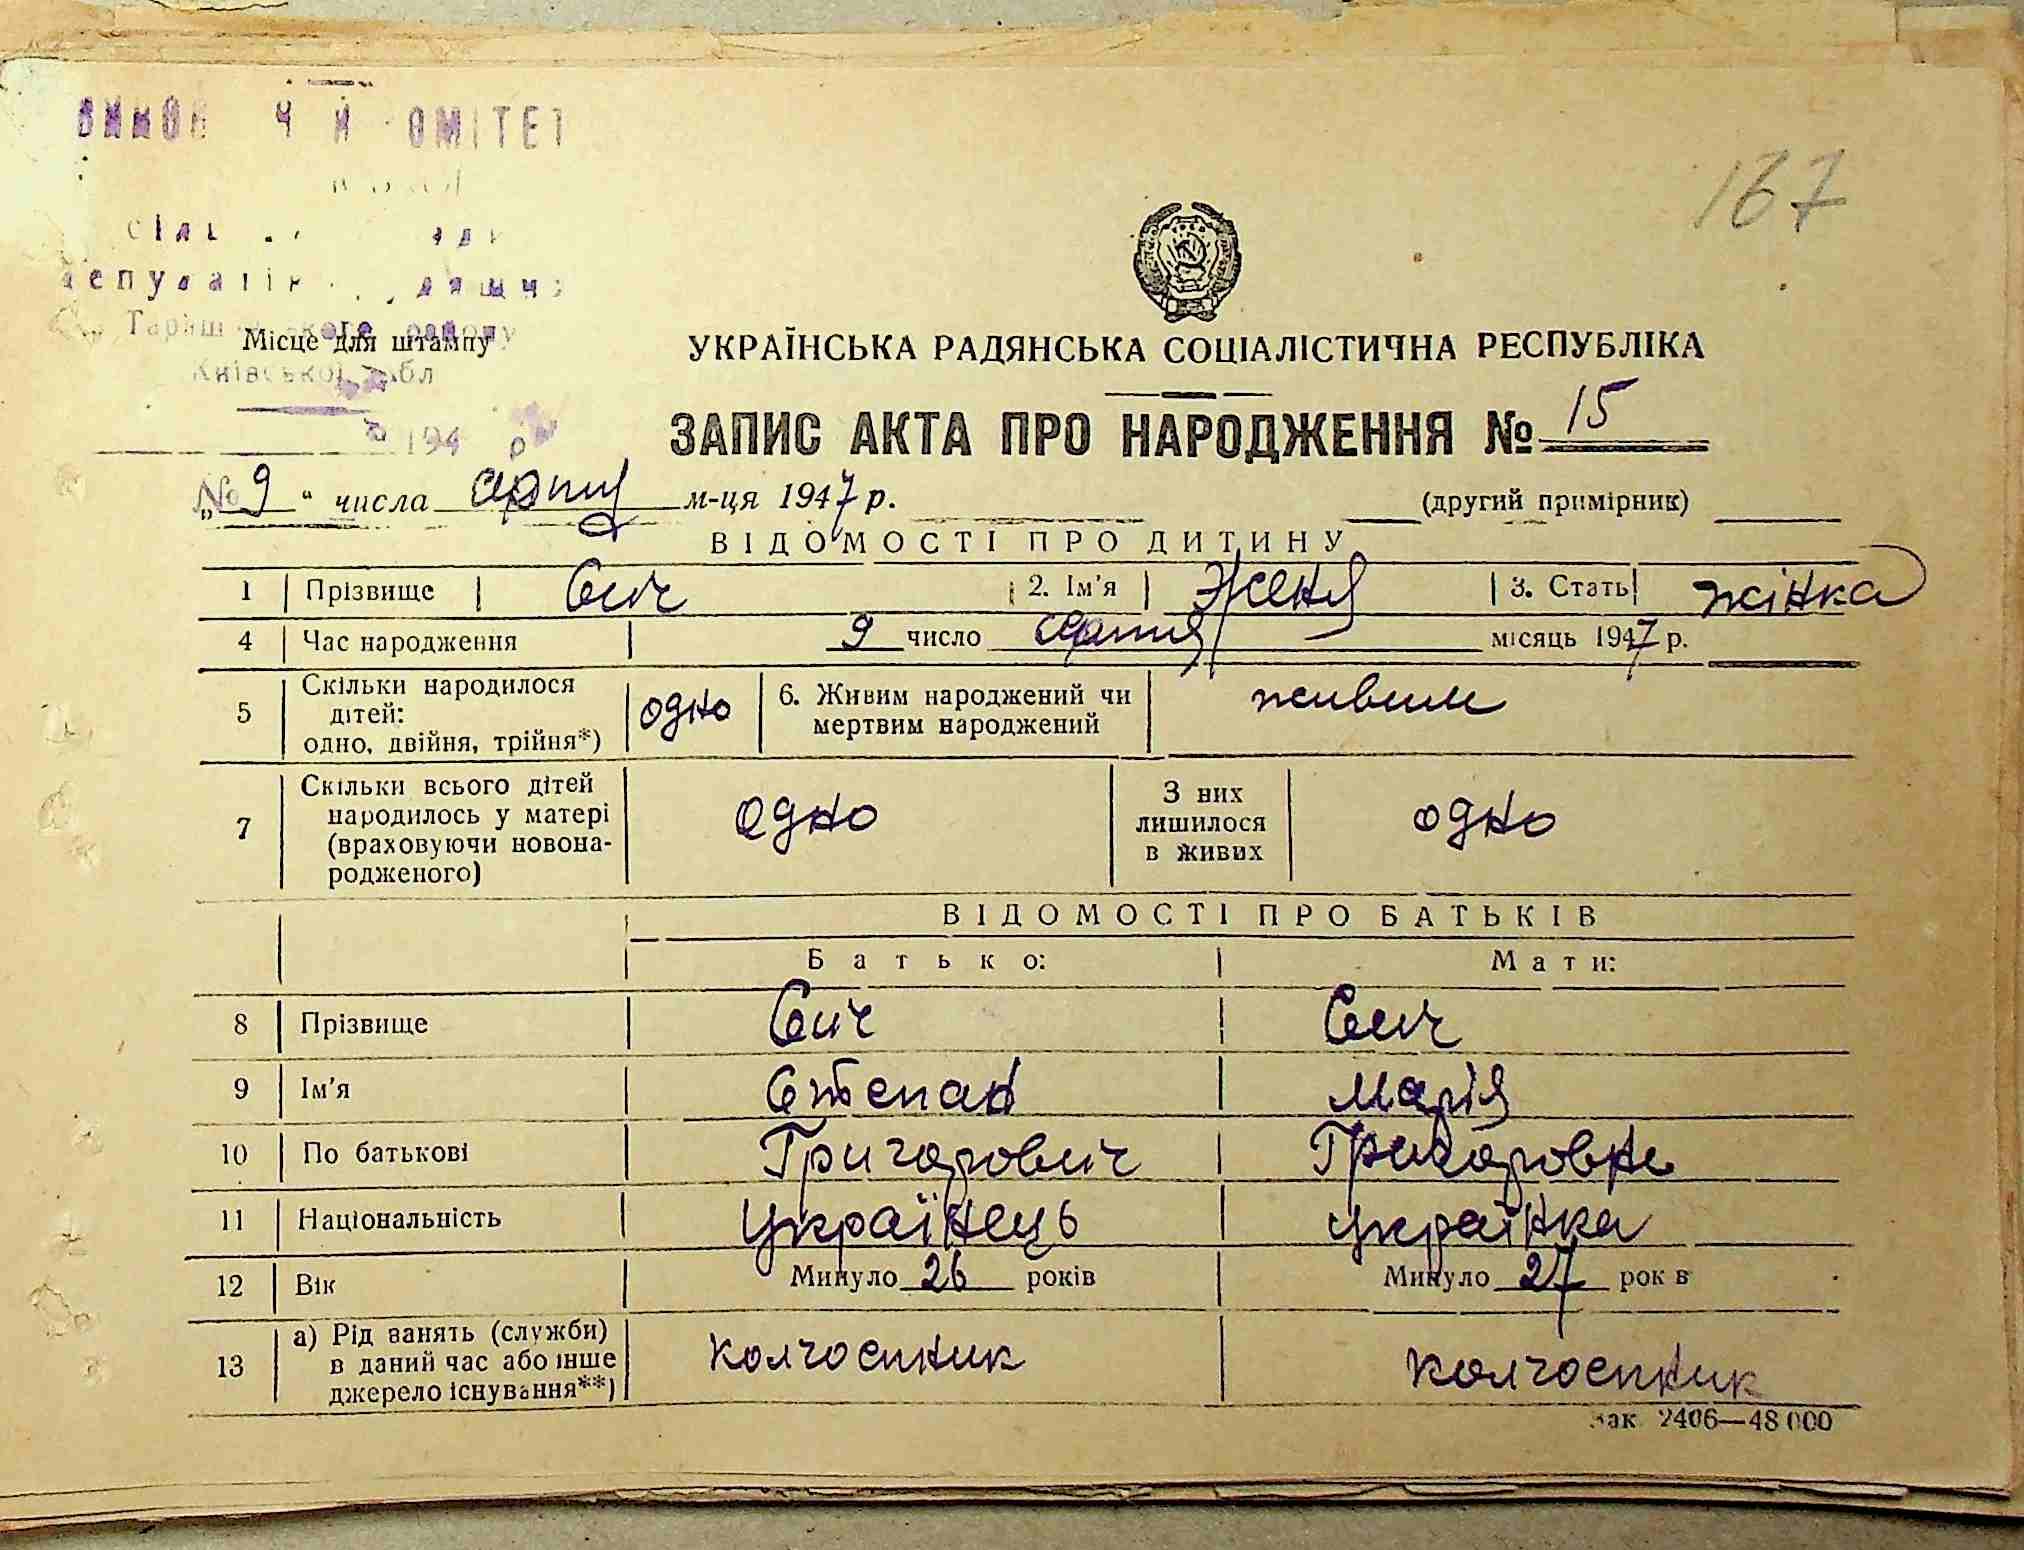 167
УКРАЇНСЬКА РАДЯНСЬКА СОЦІАЛІСТИЧНА РЕСПУБЛІКА
Місце для штампу
Київської обл
194 р
ЗАПИС АКТА ПРО НАРОДЖЕННЯ № 15
№ „9" числа серпня м-ця 1947 р. (другий примірник)
ВІДОМОСТІ ПРО ДИТИНУ
1 Прізвище Сич 2. Ім'я Женя 3. Стать жінка
4 Час народження 9 число серпня місяць 1947 р.
5 Скільки народилося дітей: одно, двійня, трійня*) одно 6. Живим народжений чи мертвим народжений живим
7 Скільки всього дітей народилось у матері (враховуючи новонародженого) одно З них лишилося в живих одно
ВІДОМОСТІ ПРО БАТЬКІВ
Батько: Мати:
8 Прізвище Сич Сич
9 Ім'я Степан Марія
10 По батькові Григорович Григоровна
11 Національність українець українка
12 Вік Минуло 26 років Минуло 27 рок в
13 а) Рід занять (служби) в даний час або інше джерело існування**) колгоспник колгоспник
Зак 2406—48 000